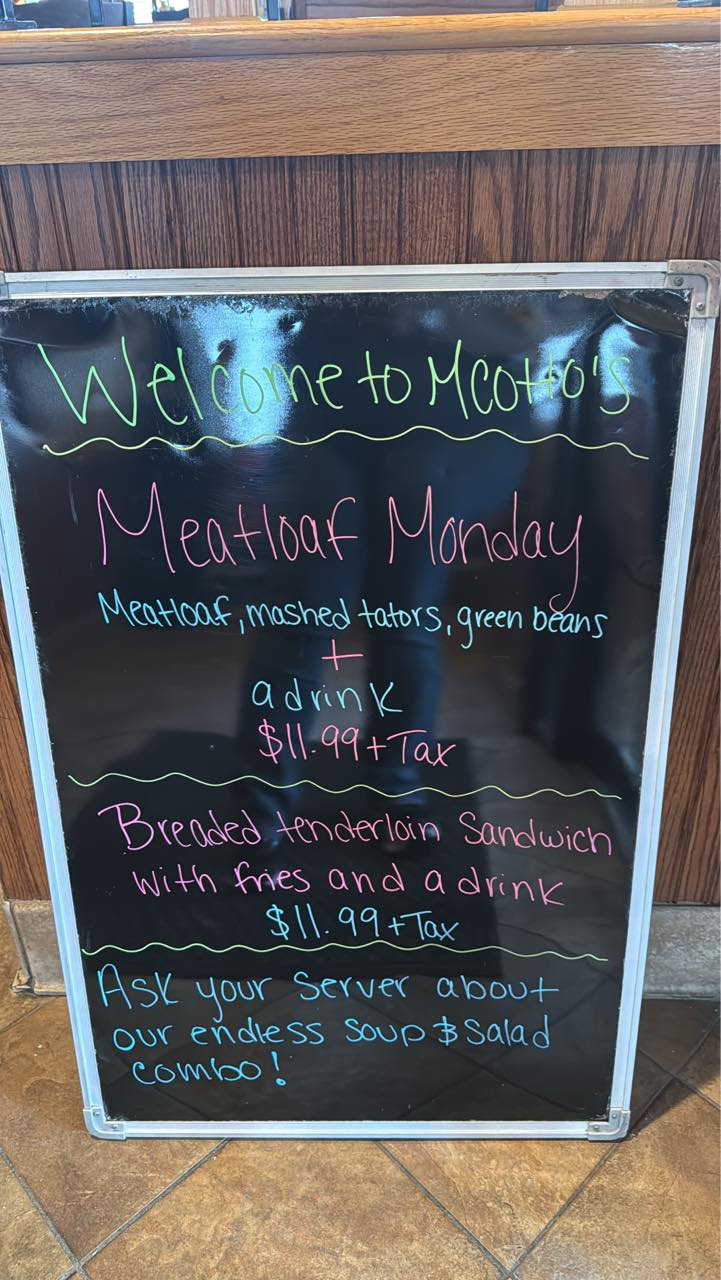 Welcome to McOtto's
Meatloaf Monday
Meatloaf, mashed tators, green beans
+
a drink
$11.99 + Tax
Breaded tenderloin Sandwich
with fries and a drink
$11.99 + Tax
Ask your Server about
our endless soup & Salad
combo!